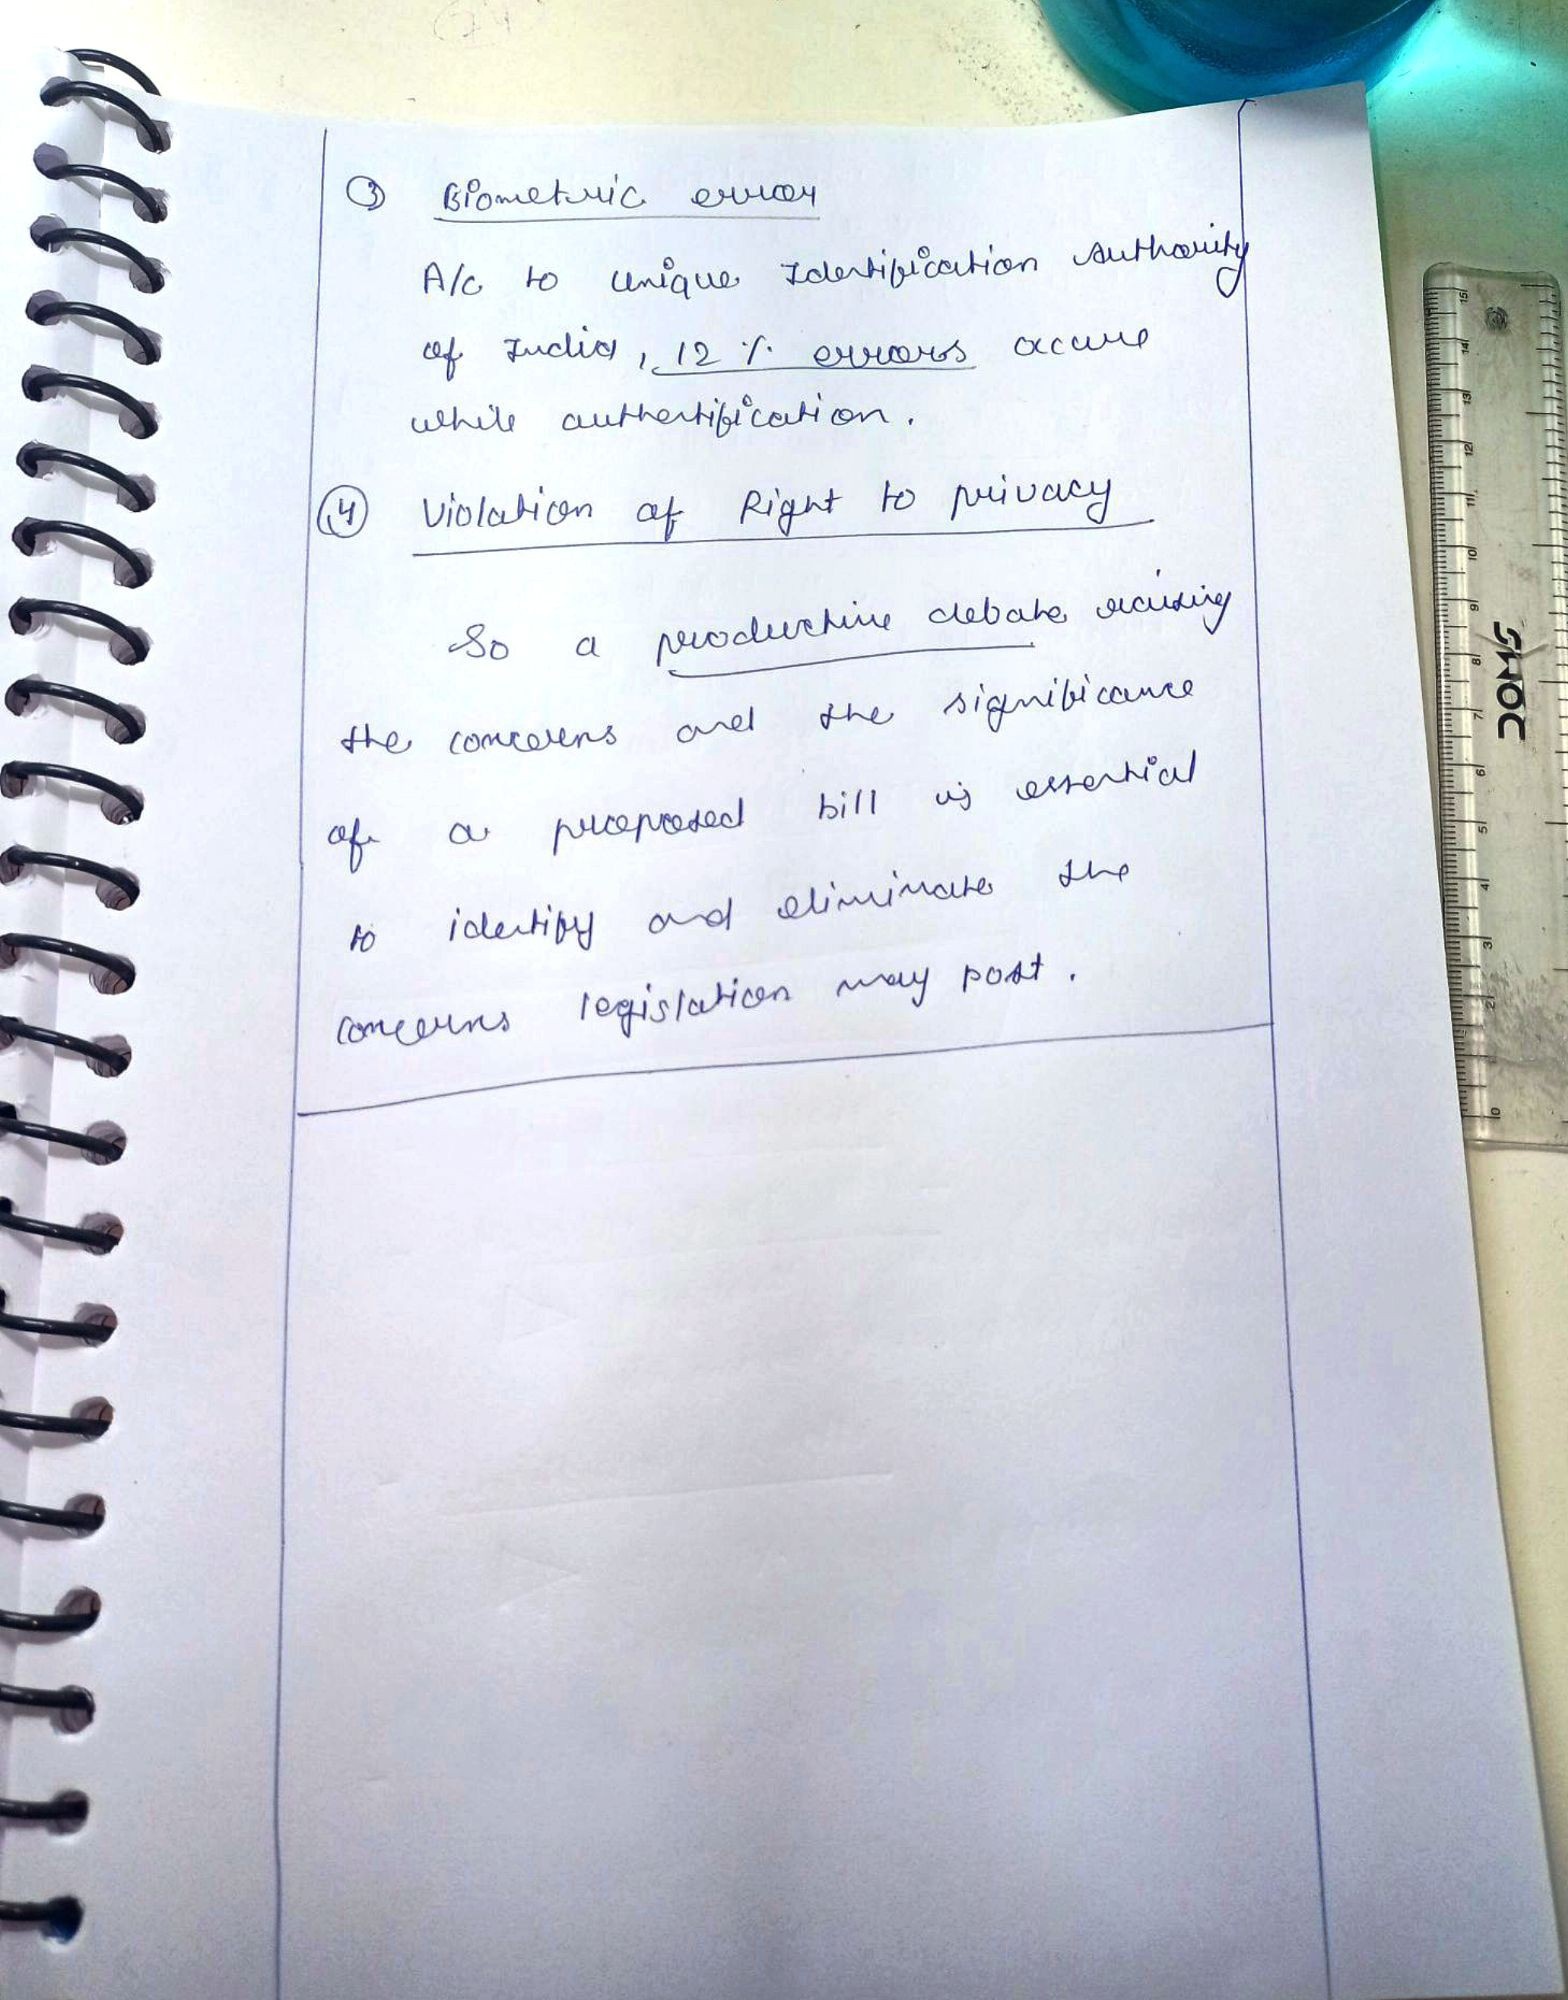 ③ Biometric error
A/c to Unique Identification Authority
of India, 12 % errors occure
while authentification.
④ Violation of Right to privacy
So a productive debate raising
the concerns and the significance
of a proposed bill is essential
to identify and eliminate the
concerns legislation may post.
DOMS
15
14
13
12
11
10
9
8
7
6
5
4
3
2
0